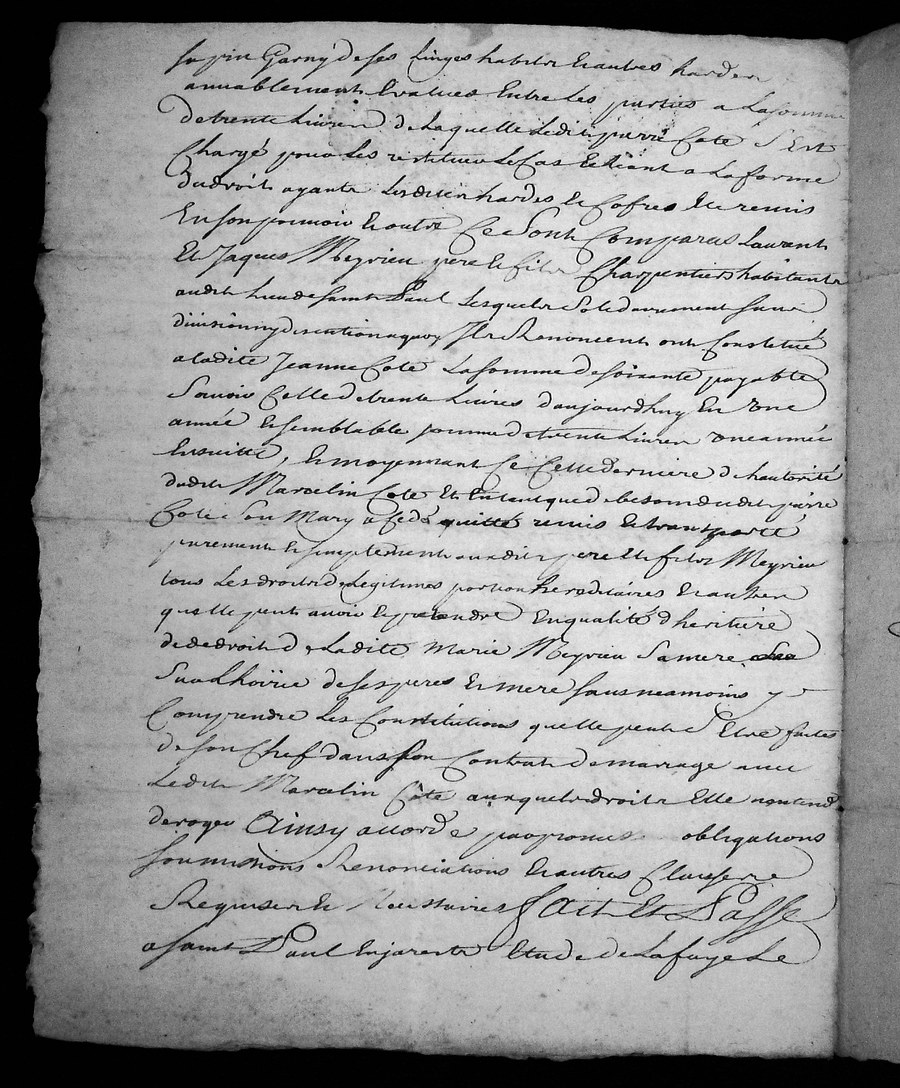 sapin Garny de ses Linges habits et autres hardes
amiablement Evalues Entre Les parties a La somme
de trente Livres de Laquelle Ledit pierre Cote S'Est
Chargé pour Les restituer Le Cas Echéant a La forme
du droit ayant Lesdites hardes et Cofres Ete remis
En son pouvoir Et outre Ce Sont Comparus Laurent
Et Jaques Meyrieu pere Et fils Charpentiers habitants
audit Lieu de saint Paul Lesquels Solidairement sans
division ny discution a quoy Ils Renoncent ont Constitué
a ladite Jeanne Cote La somme de soixante payable
Scavoir Celle de trente Livres d'aujourdhuy En une
année Et semblable somme de trente Livres une année
Ensuitte, Et moyennant Ce Cette derniere de Lautorité
dudit Marcelin Cote Et En tant que de besoin dudit pierre
Cote Son Mary a Cédé quitté remis Et transporté
purement Et simplement auxdits pere Et fils Meyrieu
tous Les droits de Legitimes portion hereditaires Et autres
quelle peut avoir Et pretendre En qualité d'heritiere
de de droit de Ladite Marie Meyrieu Sa mere
Sur Lhoirie de ses peres Et mere sans neamoins y
Comprendre Les Constitutions quelle peut S'Etre faites
de son Chef dans son Contrat de mariage avec
Ledit Marcelin Cote auxquels droits Elle n'entend
deroger Ainsy accordé par promes obligations
soumissions Renonciations Et autres Clauses
Requises Et Necessaires Fait Et Passé
a saint Paul En jarest Etude de Lafaye Le